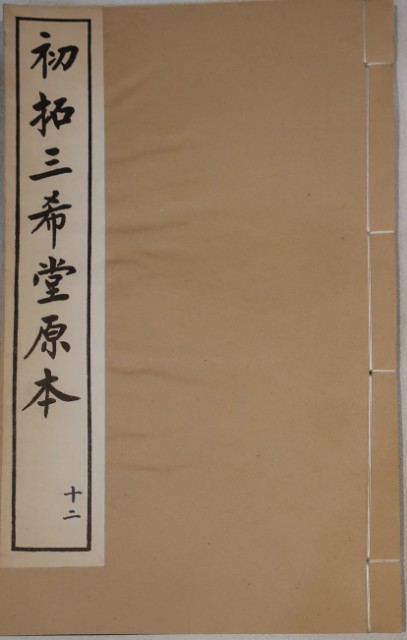 初拓三希堂原本
十二